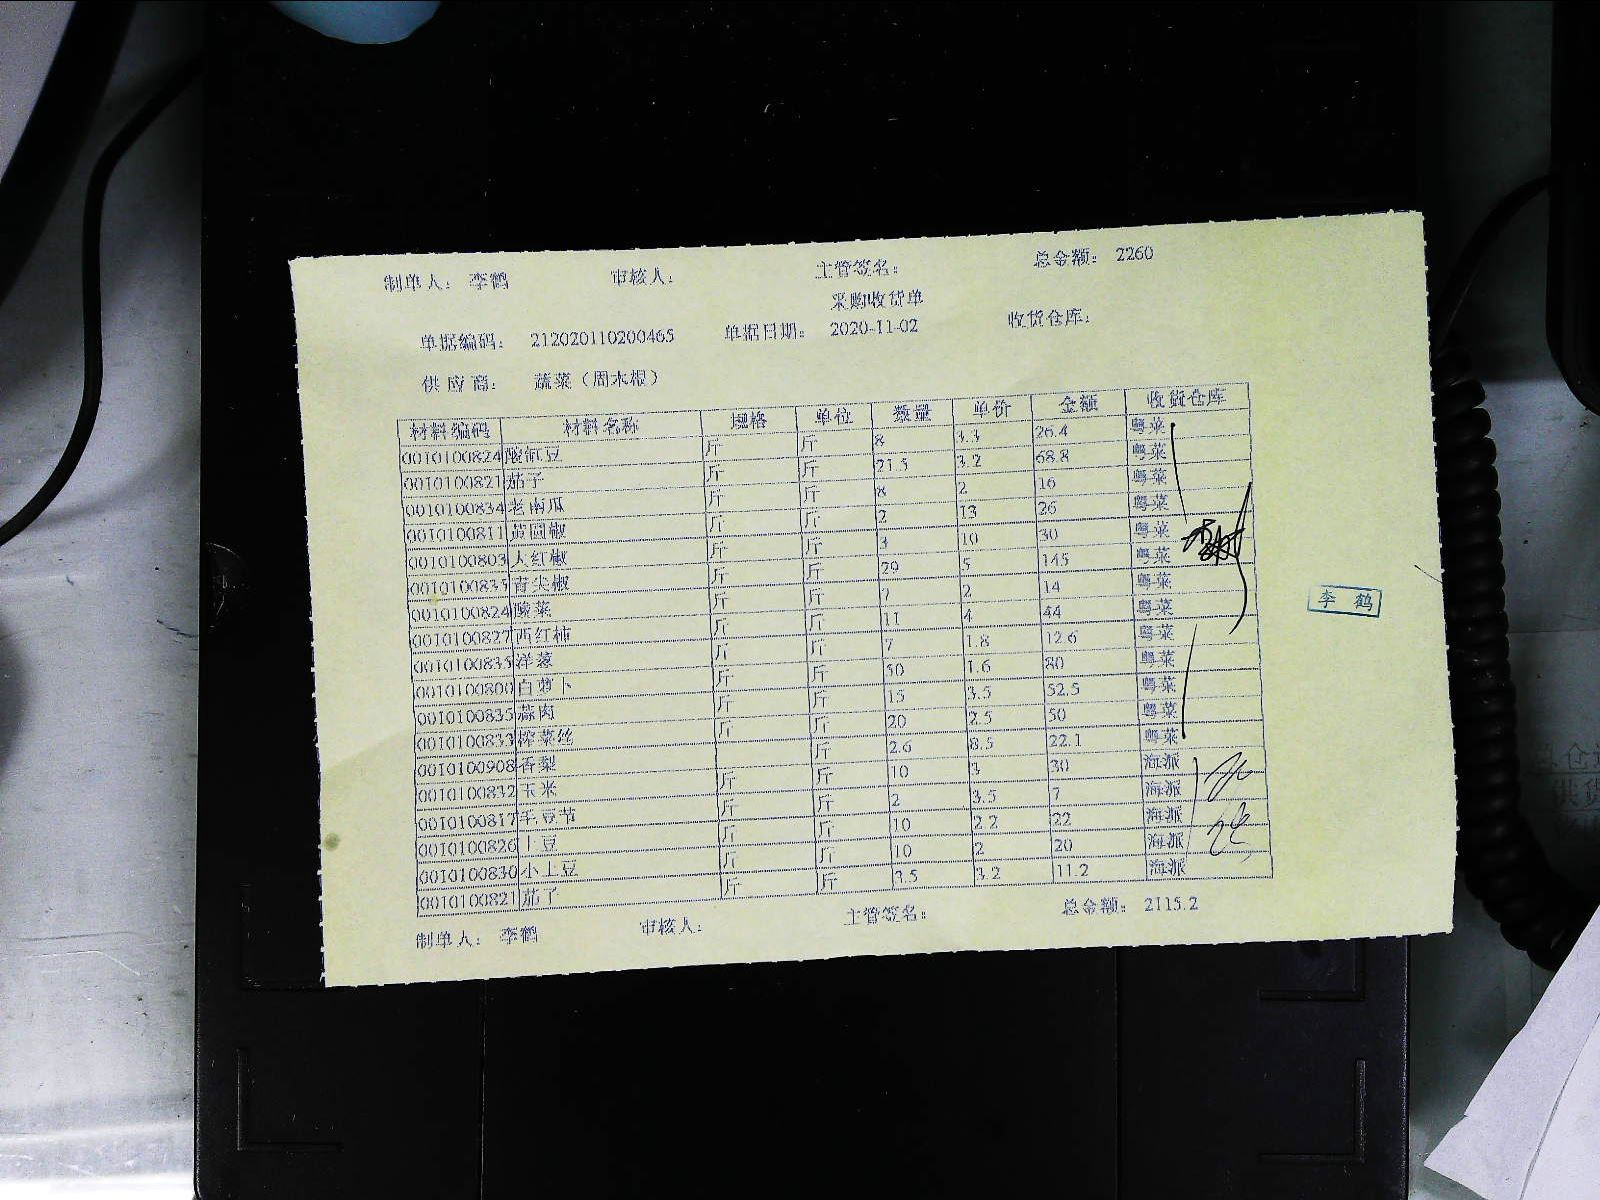 制单人： 李鹤 审核人： 主管签名： 总金额： 2260
采购收货单
单据编码： 212020110200465 单据日期： 2020-11-02 收货仓库：
供 应 商： 蔬菜（周木根）
材料编码 材料名称 规格 单位 数量 单价 金额 收货仓库
0010100824 酸缸豆 斤 斤 8 3.3 26.4 粤菜
0010100821 茄子 斤 斤 21.5 3.2 68.8 粤菜
0010100834 老南瓜 斤 斤 8 2 16 粤菜
0010100811 黄圆椒 斤 斤 2 13 26 粤菜
0010100803 大红椒 斤 斤 3 10 30 粤菜
0010100835 青尖椒 斤 斤 29 5 145 粤菜
0010100824 酸菜 斤 斤 7 2 14 粤菜
0010100827 西红柿 斤 斤 11 4 44 粤菜
0010100835 洋葱 斤 斤 7 1.8 12.6 粤菜
0010100800 白萝卜 斤 斤 50 1.6 80 粤菜
0010100835 蒜肉 斤 斤 15 3.5 52.5 粤菜
0010100833 榨菜丝 斤 斤 20 2.5 50 粤菜
0010100908 香梨 斤 2.6 8.5 22.1 粤菜
0010100832 玉米 斤 斤 10 3 30 海派
0010100817 毛豆节 斤 斤 2 3.5 7 海派
0010100826 土豆 斤 斤 10 2.2 22 海派
0010100830 小土豆 斤 斤 10 2 20 海派
0010100821 茄子 斤 斤 3.5 3.2 11.2 海派
李 鹤
制单人： 李鹤 审核人： 主管签名： 总金额： 2115.2